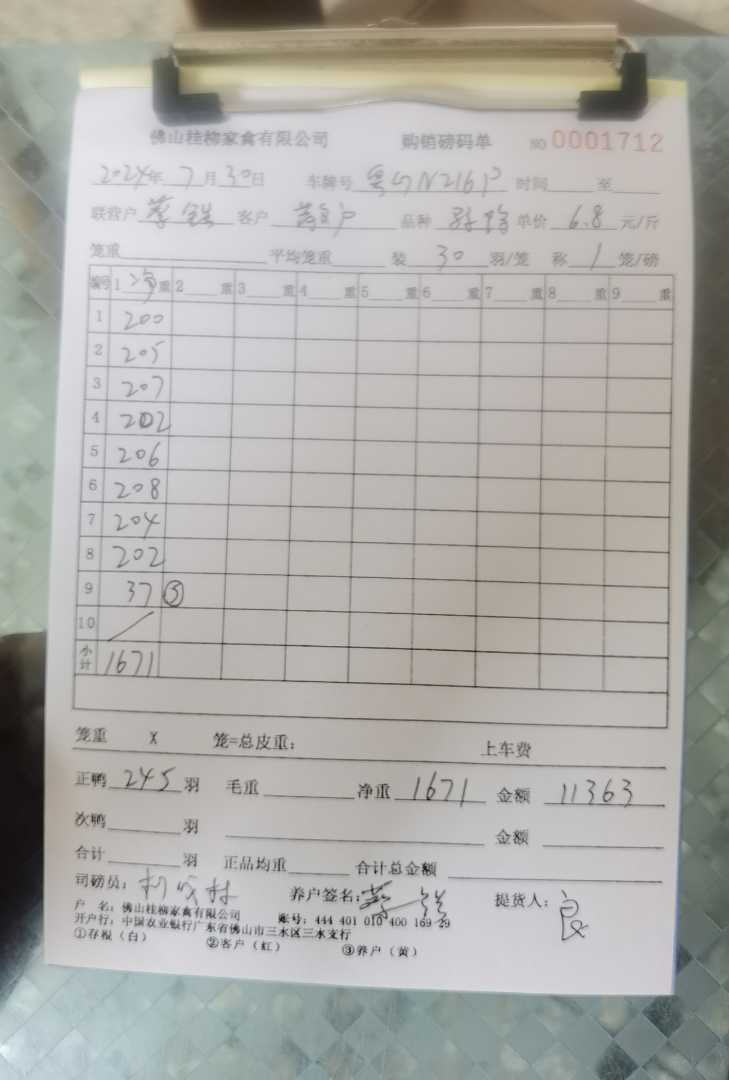 佛山桂柳家禽有限公司 购销磅码单 NO 0001712
2024年 7月30日 车牌号 粤 N216P 时间 至
联营户 蔡 客户 散户 品种 单价 6.8 元/斤
笼重 平均笼重 装 30 羽/笼 称 1 笼/磅
编号 1 净 重 2 重 3 重 4 重 5 重 6 重 7 重 8 重 9 重
1 200
2 205
3 207
4 202
5 206
6 208
7 204
8 202
9 37 ⑤
10 /
小计 1671
笼重 X 笼=总皮重: 上车费
正鸭 245 羽 毛重 净重 1671 金额 11363
次鸭 羽 金额
合计 羽 正品均重 合计总金额
司磅员: 养户签名: 蔡 提货人: 良
户 名: 佛山桂柳家禽有限公司 账号: 444 401 010 400 169 29
开户行: 中国农业银行广东省佛山市三水区三水支行
①存根(白) ②客户(红) ③养户(黄)